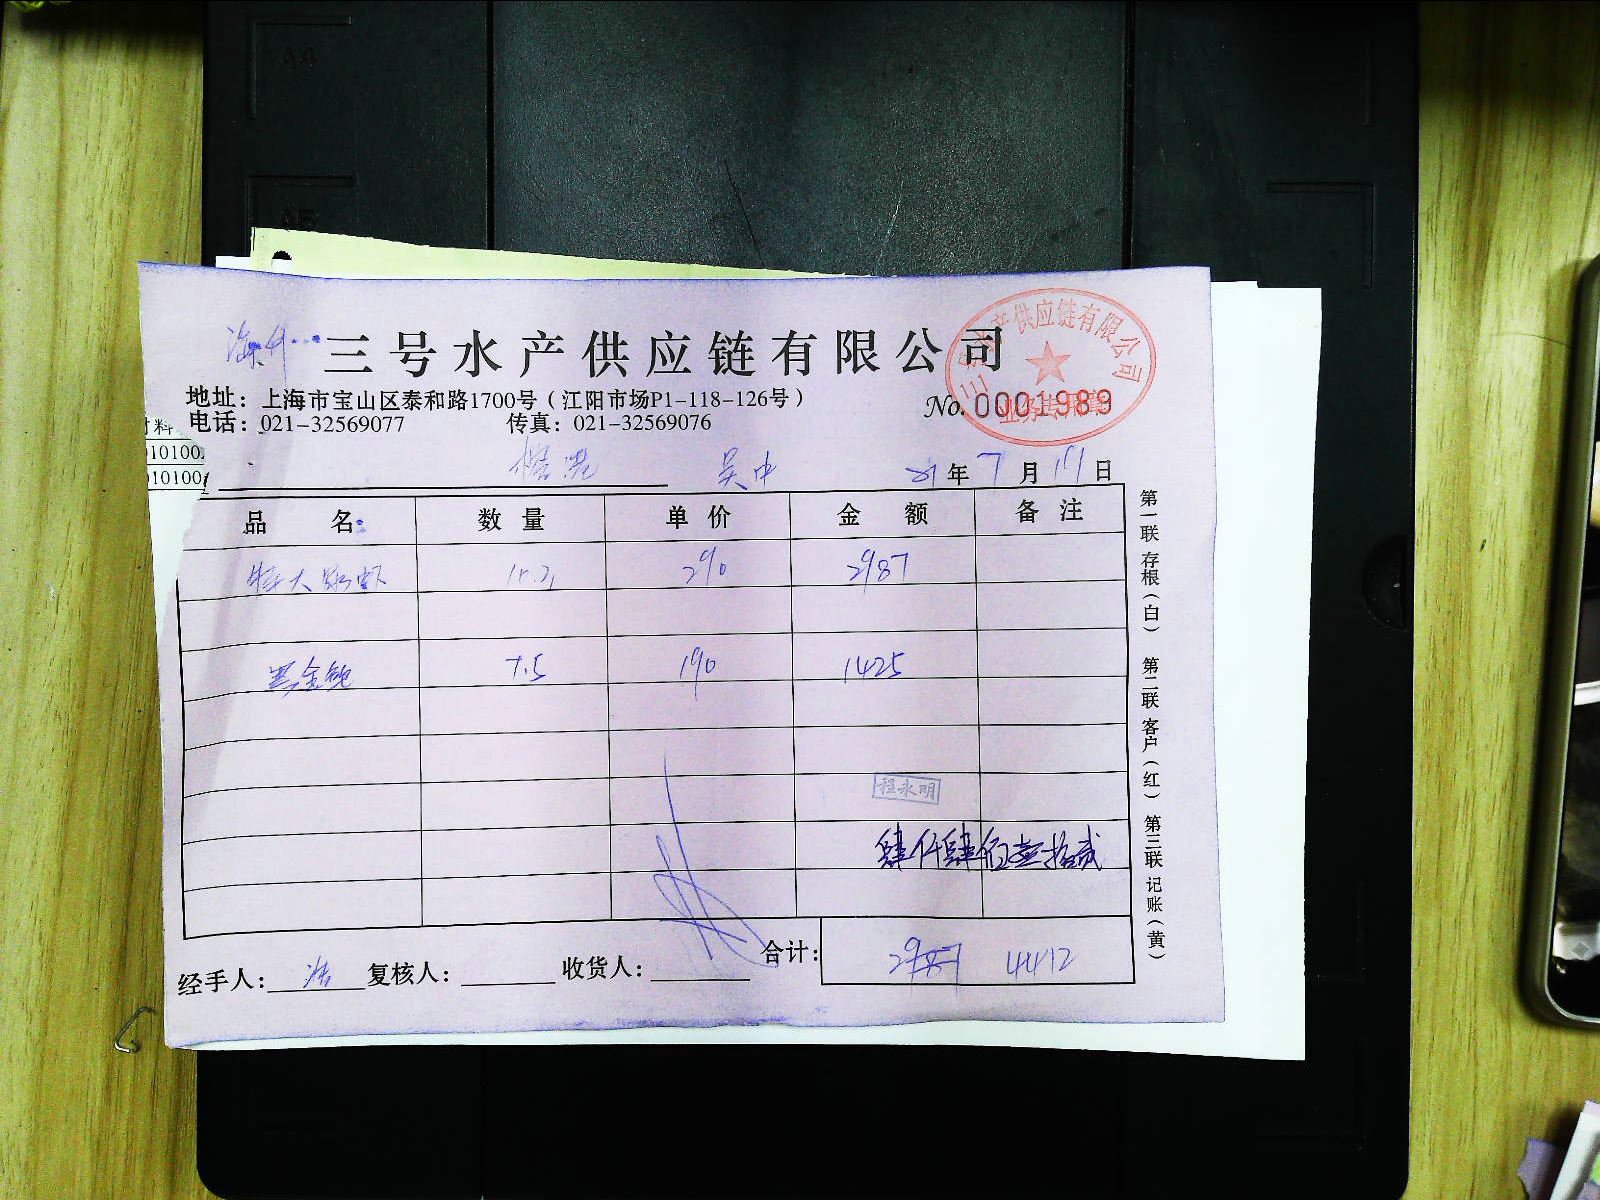 A4
A5
三号水产供应链有限公司
三号水产供应链有限公司
业务专用章
地址：上海市宝山区泰和路1700号（江阳市场P1-118-126号）
No. 0001989
电话：021-32569077 传真：021-32569076
材料
010100
010100
吴中 21年7月 日
品名 数量 单价 金额 备注
特大 虾 290 2987
黑金鲍 7.5 190 1425
程永明
肆仟肆佰壹拾贰
合计： 2987 4412
经手人：浩 复核人： 收货人：
第一联 存根（白） 第二联 客户（红） 第三联 记账（黄）